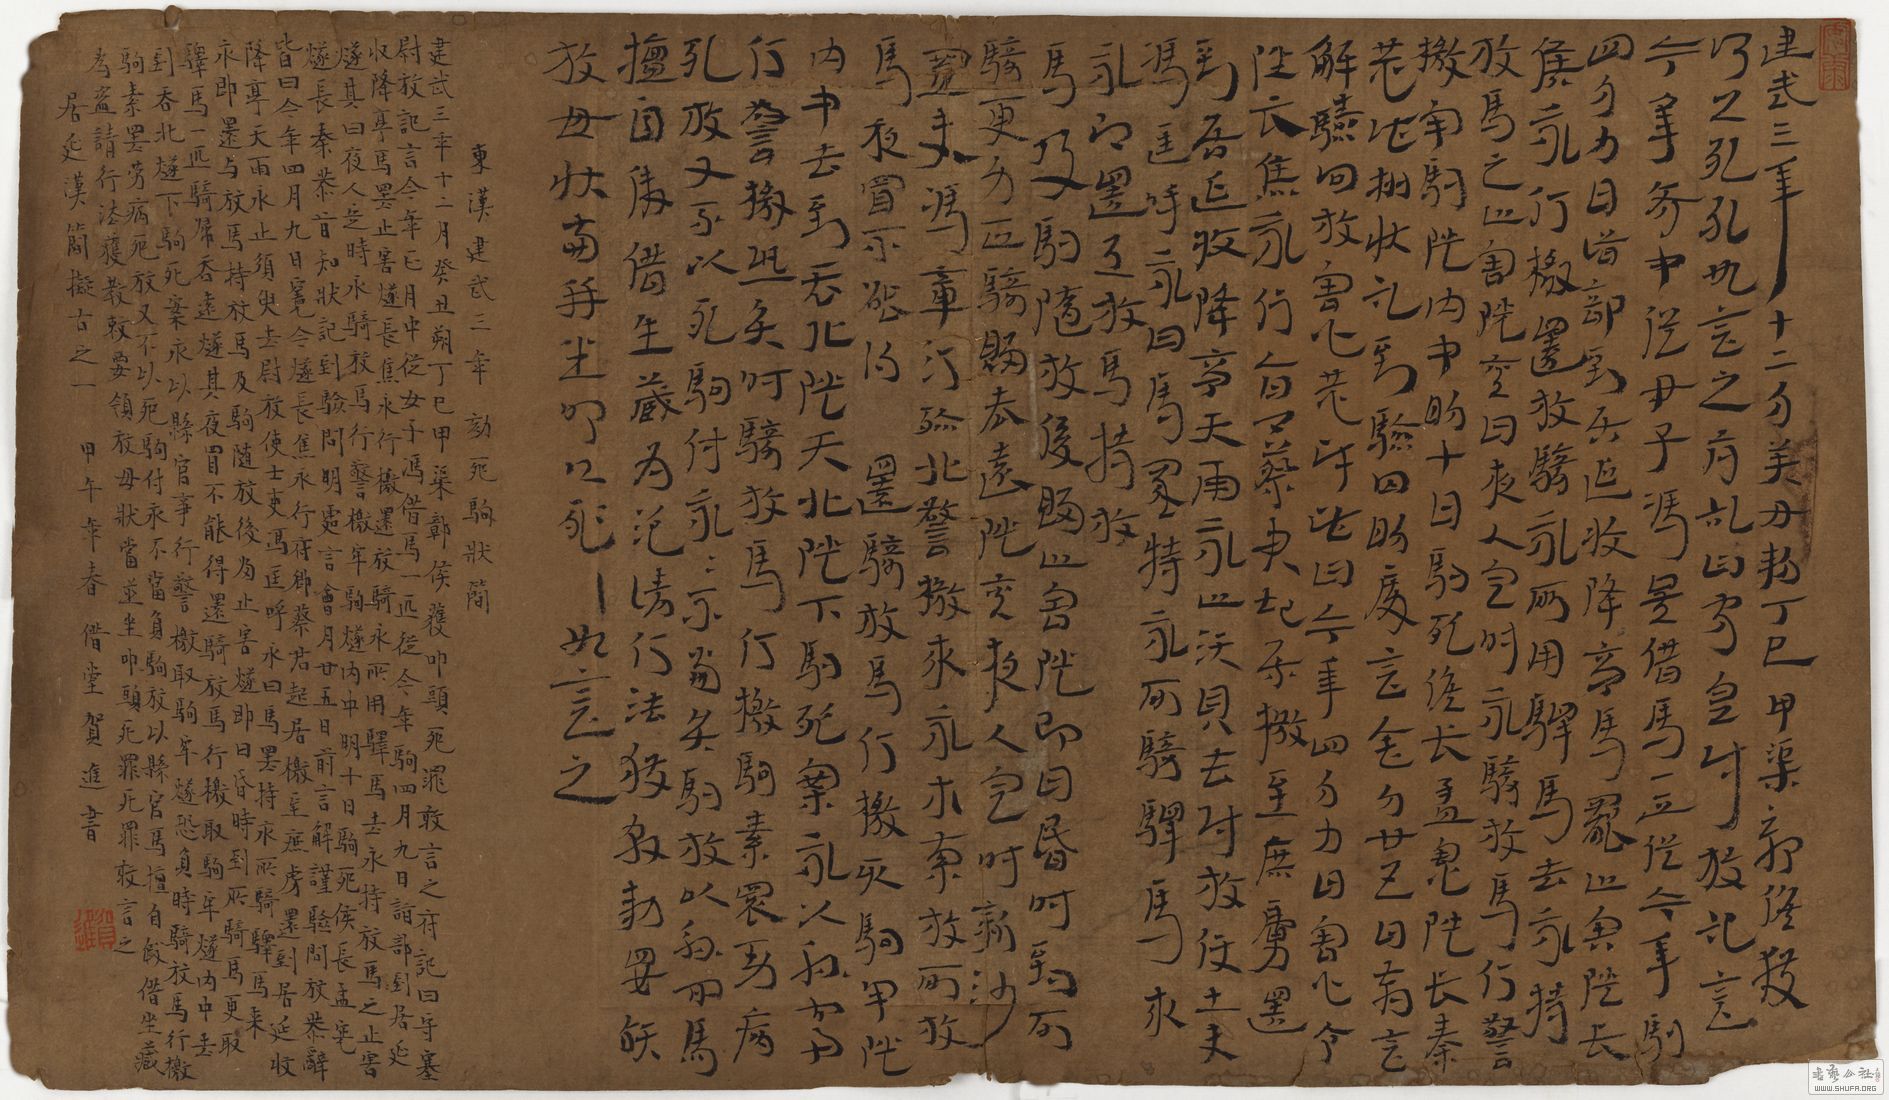 建武三年十二月癸丑朔丁巳甲渠鄣候獲
叩頭死罪死罪敢言之府記曰守塞尉放記言
今年正月中從女子馮借馬一匹從今年駒
四月九日詣部到居延收降亭馬罷止害隧長
焦永行檄還放騎永所用驛馬去永持
放馬之止害隧其日夜人定時永騎放馬行警
檄牢駒隧內中明十日駒死候長孟憲隧長秦
恭皆知狀記到驗問明處言會月廿五日前言
解謹驗問放憲恭辭皆曰今年四月九日憲令
隧長焦永行府卿蔡君起居檄至庶虜還
到居延收降亭天雨永止須臾去尉放使士吏
馮匡呼永曰馬罷持永所騎驛馬來
永即還與放馬持放
馬及駒隨放後歸止害隧即日昏時到所
騎更取一匹騎歸吞遠隧其夜人定時新沙
置吏馮章行殄北警檄來永求索放所放
馬夜冒不能得還騎放馬行檄取駒牢隧
內中去到吞北隧下駒死案永以縣官事
行警檄恐負時騎放馬行檄駒素罷勞病
死放又不以死駒付永永不當負駒放以縣官馬
擅自假借坐藏為盜請行法獲教敕要領
放毋狀當并坐叩頭死罪敢言之
東漢建武三年 劾死駒狀簡
建武三年十二月癸丑朔丁巳甲渠鄣侯獲叩頭死罪敢言之府記曰守塞
尉放記言今年正月中從女子馮借馬一匹從今年駒四月九日詣部到居延
收降亭馬罷止害燧長焦永行檄還放騎永所用驛馬去永持放馬之止害
燧其曰夜人定時永騎放馬行警檄牢駒燧內中明十日駒死侯長孟憲
燧長秦恭皆知狀記到驗問明處言會月廿五日前言解謹驗問放恭辭
皆曰今年四月九日憲令燧長焦永行府卿蔡君起居檄至庶虜還到居延收
降亭天雨永止須臾去尉放使士吏馮匡呼永曰馬罷持永所騎驛馬來
永即還与放馬持放馬及駒隨放後歸止害燧即日昏時到所騎馬更取
驛馬一匹騎歸吞遠燧其夜冒不能得還騎放馬行檄取駒牢燧內中去
到吞北燧下駒死案永以縣官事行警檄取駒牢燧恐負時騎放馬行檄
駒素罷勞病死放又不以死駒付永不當負駒放以縣官馬擅自假借坐藏
為盜請行法獲教敕要領放毋狀當並坐叩頭死罪死罪敢言之
居延漢簡擬古之一 甲午年春 借堂賀進書
WWW.SHUFA.ORG